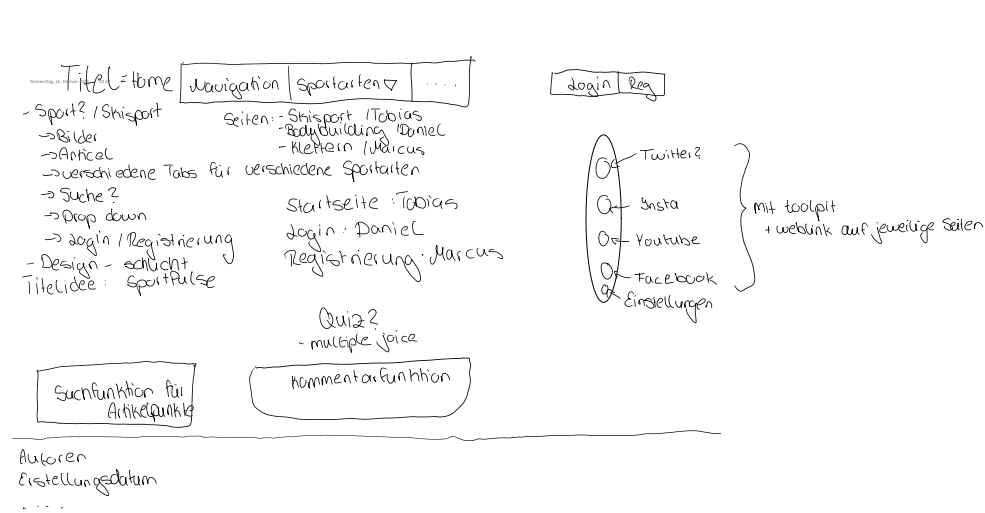 Donnerstag, 16. Februar
Titel = Home
Navigation | Sportarten ▽ | ....
Login | Reg
- Sport? / Skisport
→ Bilder
→ Articel
→ verschiedene Tabs für verschiedene Sportarten
→ Suche?
→ Drop down
→ Login / Registrierung
- Design - schlicht
Titelidee: SportPulse
Seiten: - Skisport / Tobias
- Bodybuilding / Daniel
- Klettern / Marcus
Startseite: Tobias
Login: Daniel
Registrierung: Marcus
Quiz?
- multiple joice
Twitter?
Insta
Youtube
Facebook
Einstellungen
mit toolpit
+ weblink auf jeweilige Seiten
Suchfunktion für
Artikelpunkte
Kommentarfunktion
Autoren
Erstellungsdatum